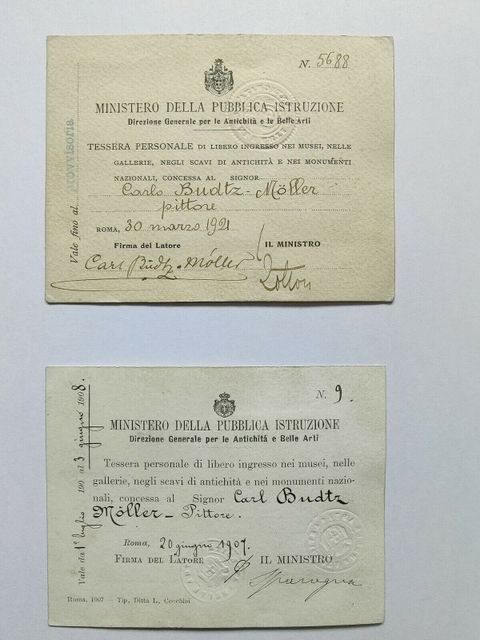 N. 5688
MINISTERO DELLA PUBBLICA ISTRUZIONE
Direzione Generale per le Antichità e le Belle Arti
TESSERA PERSONALE DI LIBERO INGRESSO NEI MUSEI, NELLE
GALLERIE, NEGLI SCAVI DI ANTICHITÀ E NEI MONUMENTI
NAZIONALI, CONCESSA AL SIGNOR
Carlo Budtz-Möller
pittore
ROMA, 30 marzo 1921
Firma del Latore IL MINISTRO
Carl Budtz-Möller
Vale fino al
Provvisoria
N. 9.
MINISTERO DELLA PUBBLICA ISTRUZIONE
Direzione Generale per le Antichità e Belle Arti
Tessera personale di libero ingresso nei musei, nelle
gallerie, negli scavi di antichità e nei monumenti nazio-
nali, concessa al Signor Carl Budtz
Möller - Pittore.
Roma, 20 giugno 1907.
FIRMA DEL LATORE IL MINISTRO
Roma, 1907 - Tip. Ditta L. Cecchini
Vale da 1° luglio 190 al 3 giugno 1908.